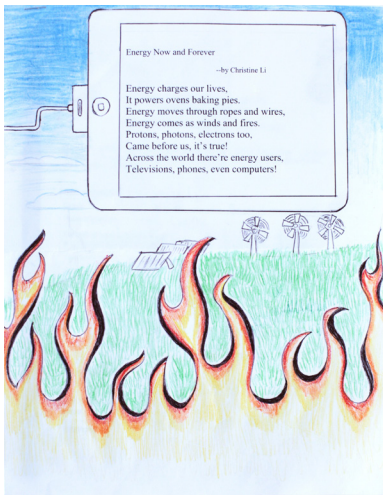 Energy Now and Forever
--by Christine Li
Energy charges our lives,
It powers ovens baking pies.
Energy moves through ropes and wires,
Energy comes as winds and fires.
Protons, photons, electrons too,
Came before us, it's true!
Across the world there're energy users,
Televisions, phones, even computers!